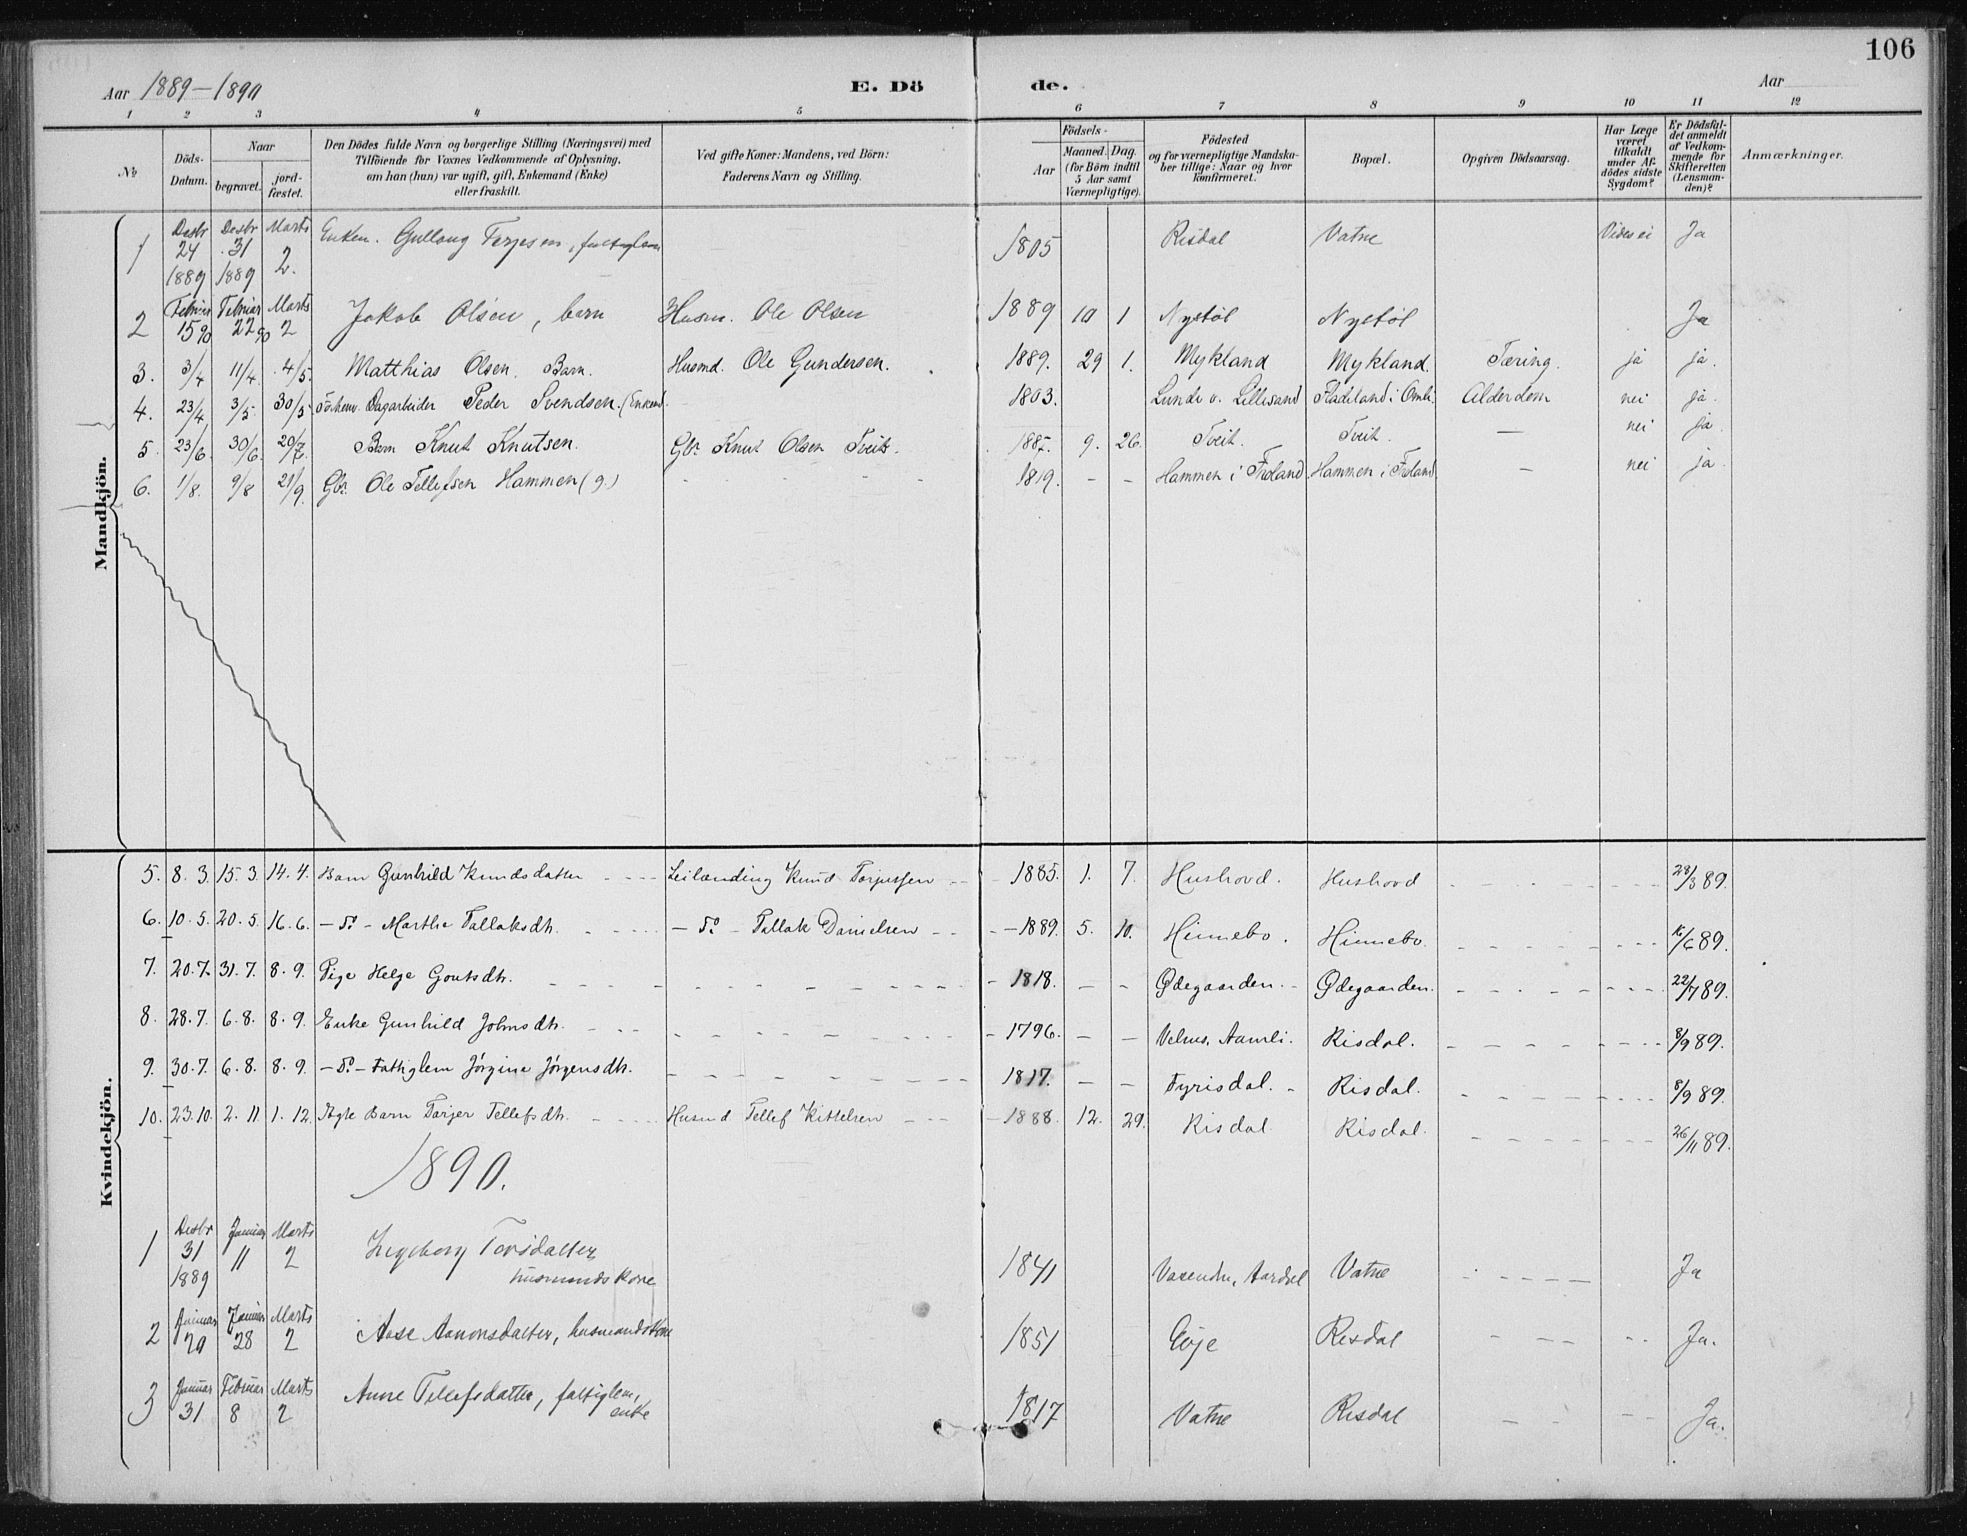 106
Aar 1889-1890 E. Dö de. Aar
1 2 3 4 5 6 7 8 9 10 11 12
No
Döds-Datum.
Naar
begravet.
jord-fæstet.
Den Dödes fulde Navn og borgerlige Stilling (Næringsvei) med
Tilföiende for Voxnes Vedkommende af Oplysning,
om han (hun) var ugift, gift, Enkemand (Enke)
eller fraskilt.
Ved gifte Koner: Mandens, ved Börn:
Faderens Navn og Stilling.
Födsels-
Aar
Maaned. Dag.
(for Börn indtil
5 Aar samt
Værnepligtige).
Födested
og for værnepligtige Mandska-
ber tillige: Naar og hvor
konfirmeret.
Bopæl.
Opgiven Dödsaarsag.
Har Læge
været
tilkaldt
under Af-
dödes sidste
Sygdom?
Er Dödsfal-
det anmeldt
af Vedkom-
mende for
Skifteretten
(Lensman-
den)?
Anmærkninger.
Mandkjön.
1 Desbr 24 1889 Desbr 31 1889 Marts 2. Enken. Gullaug Terjesen, fattiglem 1805 Risdal Vatne Vides ei Ja
2 Februar 15 90 Februar 22 90 Marts 2 Jakob Olsen, barn Husm. Ole Olsen 1889 10 1 Nystøl Nystøl Ja
3. 3/4 11/4. 4/5. Matthias Olsen. Barn. Husmd. Ole Gundersen. 1889. 29 1. Mykland Mykland. Tæring. ja ja.
4. 23/4 3/5. 30/3 Dagarbeider Peder Svendsen. (Enkemd. 1803. Lunde v. Lillesand i Omli. Alderdom nei ja.
5. 23/6. 30/6. 20/7. Barn Knut Knutsen. Gbr. Knut Olsen Tveit. 1887. 9. 26. Tveit. Tveit. — nei ja.
6. 1/8. 9/8 21/9. Gbr. Ole Tellefsen Hammen (g.) 1819. - - Hammen i Froland. Hammen i Froland. — nei ja.
Kvindekjön.
5. 8. 3. 15. 3. 14. 4. Barn Gunhild Knudsdatter Leilænding Knud Torjussen 1885. 1. 7. Hushovd. Hushovd 28/3 89.
6. 10. 5. 20. 5. 16. 6. - Do - Marthe Tallaksdtr. - Do - Tallak Danielsen 1889. 5. 10. Hinnebo. Hinnebo. 16/6 89.
7. 20. 7. 31. 7. 8. 9. Pige Helge Goutsdtr. 1818. - - Ødegaarden. Ødegaarden. 22/7 89.
8. 28. 7. 6. 8. 8. 9. Enke Gunhild Johnsdtr. 1796. - - Aamli. Risdal. 8/9 89.
9. 30. 7. 6. 8. 8. 9. - Do - Fattiglem Jörgine Jörgensdtr. 1817. - - Fyrisdal. Risdal. 8/9 89.
10. 23. 10. 2. 11. 1. 12. Ægte Barn Torjer Tellefsdtr. Husmd Tellef Kittelsen 1888. 12. 29. Risdal Risdal. 26/11 89.
1890.
1 Desbr 31 1889 Januar 11 Marts 2 Ingeborg Torsdatter 1841 Vasenden, Aardal Vatne Ja
husmandskone
2 Januar 20 Januar 28 Marts 2 Aase Aanonsdatter, husmandskone 1851 Evje Risdal Ja.
3 Januar 31 Februar 8 Marts 2 Anne Tellefsdatter, fattiglem, 1817 Vatne Risdal Ja.
enke